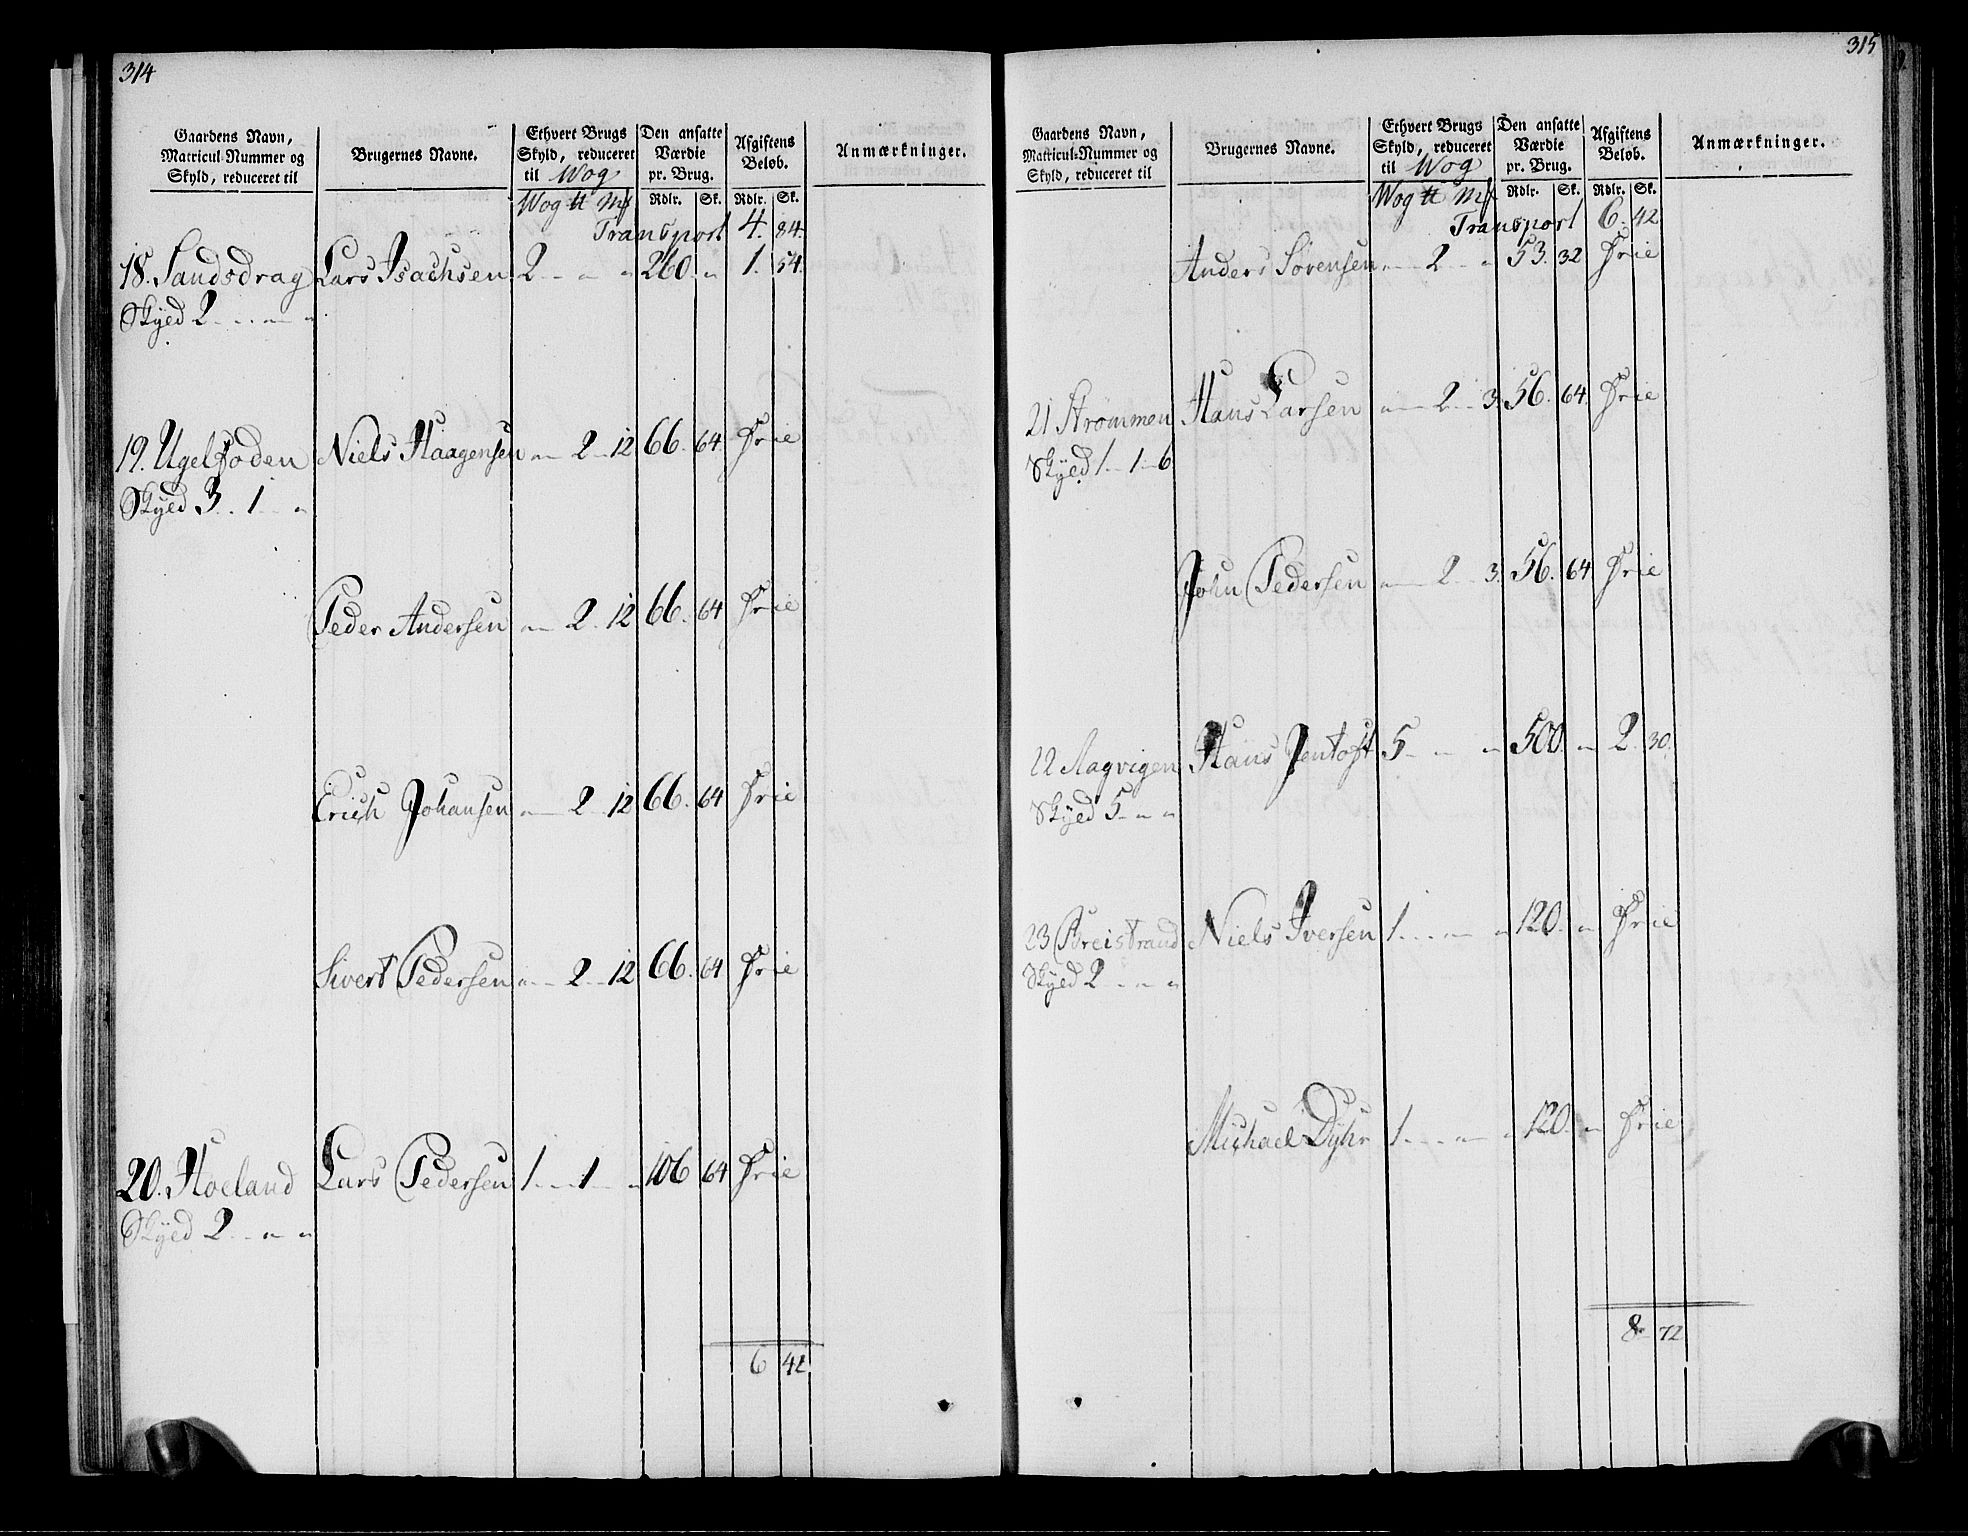 314
Gaardens Navn, Matricul-Nummer og Skyld, reduceret til
Brugernes Navne.
Ethvert Brugs Skyld, reduceret til Wog
Den ansatte Værdie pr. Brug.
Afgiftens Beløb.
Anmærkninger.
Wog ℔ Mk Rdlr. Sk. Rdlr. Sk.
Transport 4. 84.
18. Sandsdrag Lars Isachsen 2 - " " 260. " 1. 54.
Skyed 2 - " "
19. Ugelfoden Niels Haagensen " 2 12 66. 64 Frie
Skyed 3 - 1 - "
Peder Andersen " 2 12 66. 64 Frie
Erich Johansen " 2 12 66. 64 Frie
Sivert Pedersen " 2 12 66. 64 Frie
20. Hoeland Lars Pedersen 1 - 1 - " 106 64 Frie
Skyed 2 - " "
6 42
315
Gaardens Navn, Matricul-Nummer og Skyld, reduceret til
Brugernes Navne.
Ethvert Brugs Skyld, reduceret til Wog
Den ansatte Værdie pr. Brug.
Afgiftens Beløb.
Anmærkninger.
Wog ℔ Mk Rdlr. Sk. Rdlr. Sk.
Transport 6. 42
Anders Sørensen " 2 - " 53. 32 Frie
21 Strømmen Hans Larsen " 2 3. 56. 64. Frie
Skyed 1 - 1 - 6
John Pedersen " 2 3. 56. 64 Frie
22 Aagvigen Hans Jentoft 5 - " " 500. " 2. 30.
Skyed 5 - " "
23 Breistrand Niels Iversen 1 - " " 120. " Frie
Skyed 2 - " "
Michael Dyhr 1 - " " 120. " Frie
8 72